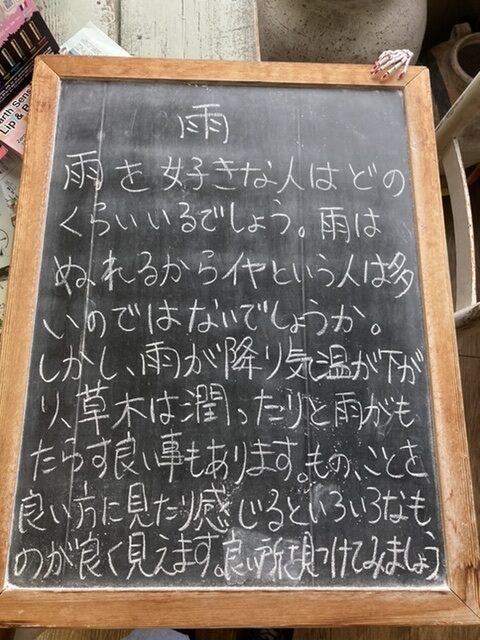 雨
雨を好きな人はどの
くらいいるでしょう。雨は
ぬれるからイヤという人は多
いのではないでしょうか。
しかし、雨が降り気温が下が
り、草木は潤ったりと雨がも
たらす良い事もあります。もの、ことを
良い方に見たり感じるといろいろなも
のが良く見えます。良い所を見つけてみましょう
Lip &